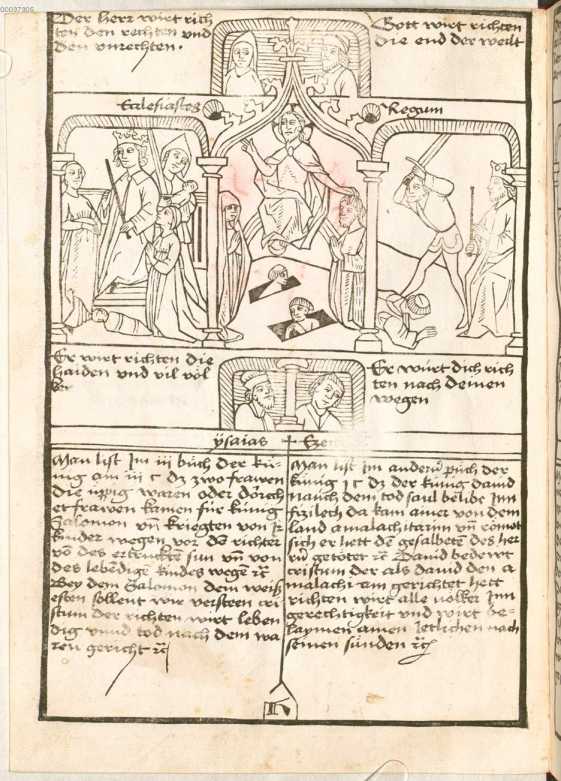 00037905
Der herr würt rich
ten den rechten und
den unrechten.
Gott würt richten
die end der welt
Ecclesiastes
Regum
Er wirt richten die
haiden und vil völ
ker
Er würt dich rich
ten nach deinen
wegen
ysaias
Eze
Man list Im iii buch der kü-
nig am iii c dz zwo frawen
die üppig waren oder dörch
et frawen kamen für künig
Salomon vn̄ kriegten von Ir
kinder wegen vor dē richter
vō des ertruckten sun vn̄ von
des lebēdigē kindes wegē ꝛc
Bey dem Salomon dem weiß
esten sollent wir versteen cri
stum der richten wirt leben
dig vnnd tod nach dem wa
ren gericht ꝛc
Man list im anderū puch der
künig i c dz der künig dauid
nauch dem tod saul belibe Inn
sizilech da kam ainer von dem
land amalachitarum vn̄ römet
sich er hett dē gesalbetē des her
rū getötet ꝛc Dauid bedewt
cristum der als dauid den a
malachitam gerichtet hett
richten wirt alle völker Inn
gerechtigkeit vnd wirt be-
laymen ainen Ietlichen nach
seinen sünden ꝛc